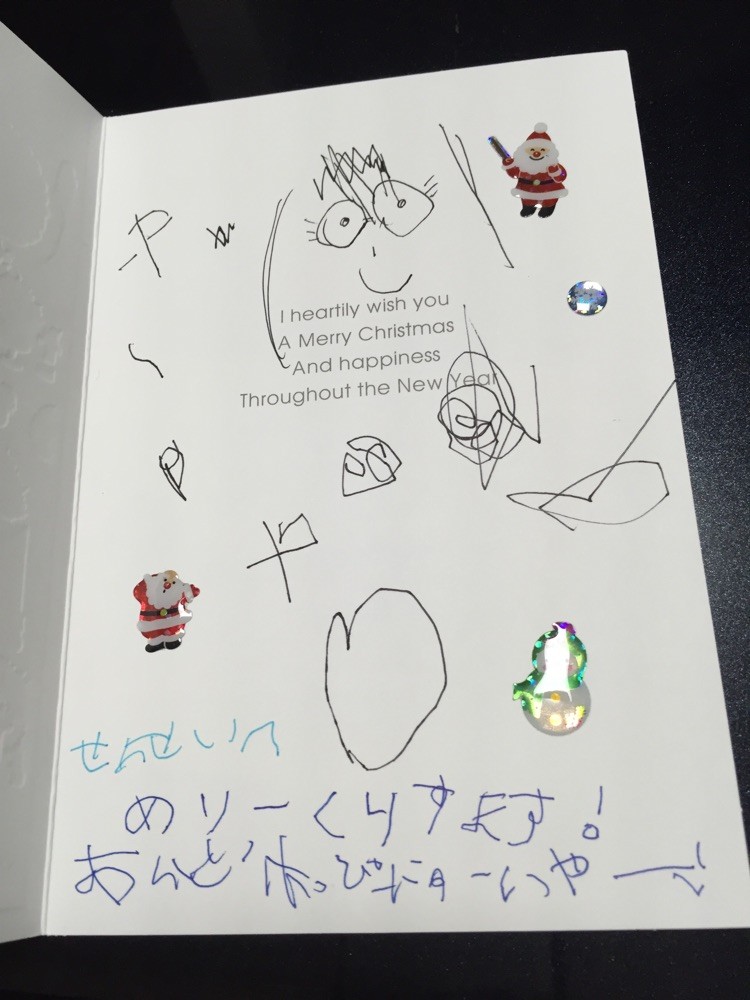 I heartily wish you
A Merry Christmas
And happiness
Throughout the New Year
せんせいへ
めりーくりすます!
あんど